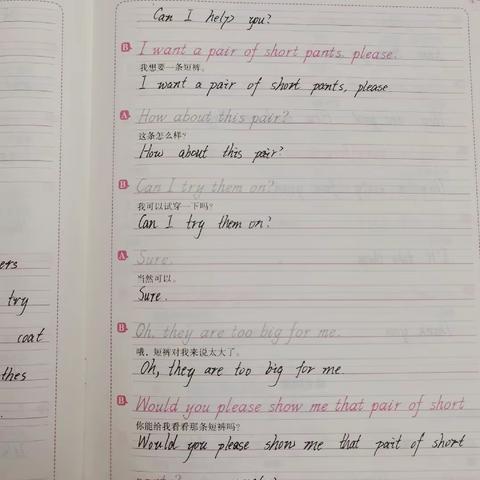 Can I help you?
B I want a pair of short pants, please.
我想要一条短裤。
I want a pair of short pants, please
A How about this pair?
这条怎么样?
How about this pair?
B Can I try them on?
我可以试穿一下吗?
Can I try them on?
A Sure.
当然可以。
Sure.
B Oh, they are too big for me.
哦，短裤对我来说太大了。
Oh, they are too big for me
B Would you please show me that pair of short
你能给我看看那条短裤吗?
Would you please show me that pait of short
ers
try
coat
thes